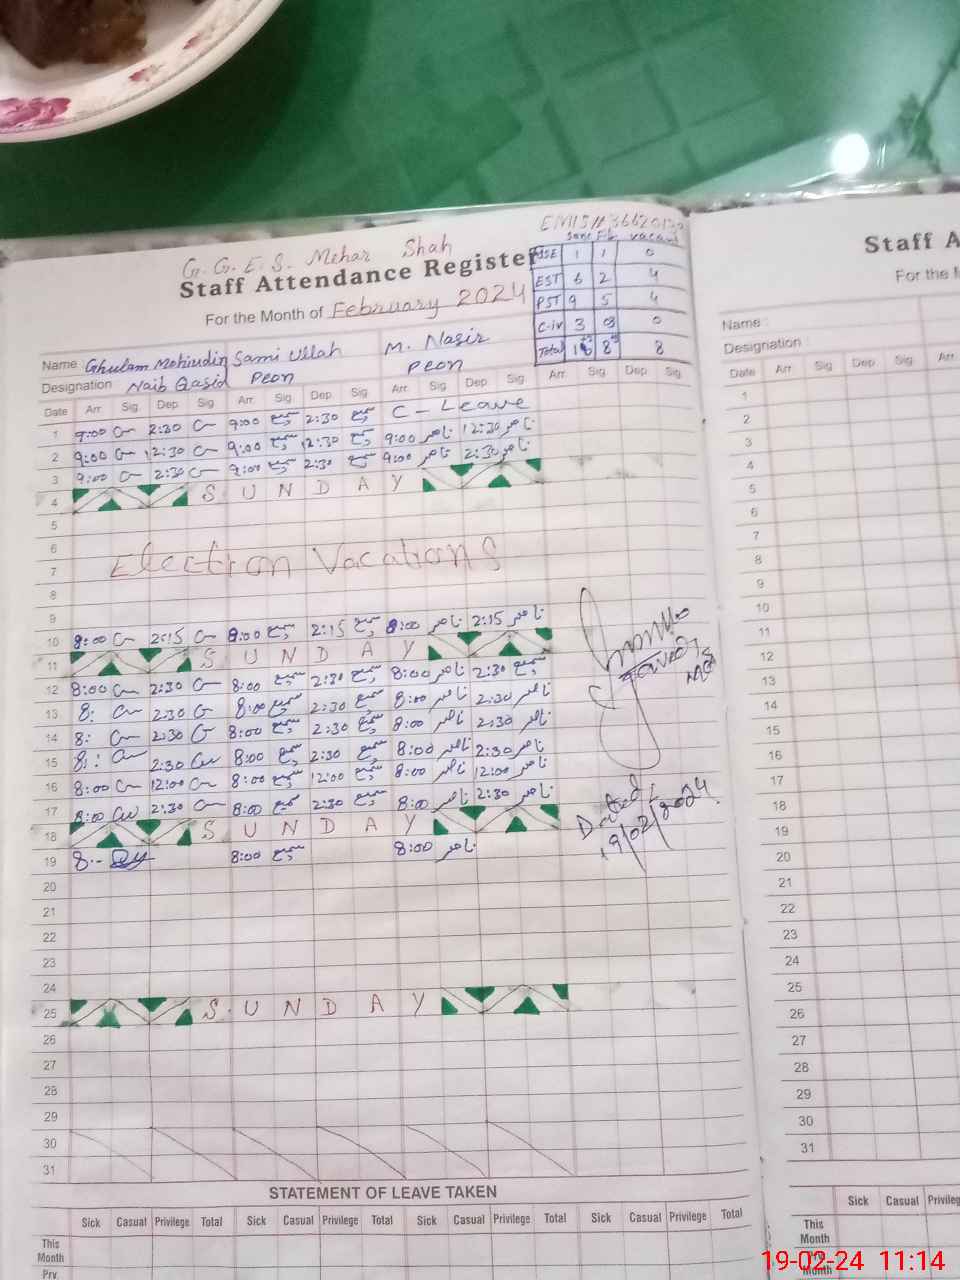 G. G. E. S. Mehar Shah
Staff Attendance Register
For the Month of February 2024
EMIS # 3662013
Sanc Fil vacant
SSE 1 1 0
EST 6 2 4
PST 9 5 4
C-iv 3 03 0
Total 8 8
Name : Ghulam Mohiudin Sami Ullah M. Nasir
Designation Naib Qasid Peon Peon
Date Arr. Sig. Dep Sig Arr. Sig. Dep Sig Arr. Sig Dep Sig Arr. Sig Dep Sig
1 9:00 2:30 9:00 سمیع 2:30 سمیع C - Leave
2 9:00 12:30 9:00 سمیع 12:30 سمیع 9:00 ناصر 12:30 ناصر
3 9:00 2:30 9:00 سمیع 2:30 سمیع 9:00 ناصر 2:30 ناصر
4 S U N D A Y
5
6
7 Election Vacations
8
9
10 8:00 2:15 8:00 سمیع 2:15 سمیع 8:00 ناصر 2:15 ناصر
11 S U N D A Y
12 8:00 2:30 8:00 سمیع 2:30 سمیع 8:00 ناصر 2:30
13 8: 2:30 8:00 سمیع 2:30 سمیع 8:00 ناصر 2:30 ناصر
14 8: 2:30 8:00 سمیع 2:30 سمیع 8:00 ناصر 2:30 ناصر
15 8: 2:30 8:00 سمیع 2:30 سمیع 8:00 ناصر 2:30 ناصر
16 8:00 12:00 8:00 سمیع 12:00 سمیع 8:00 ناصر 12:00 ناصر
17 8:00 2:30 8:00 سمیع 2:30 سمیع 8:00 ناصر 2:30 ناصر
18 S U N D A Y
19 8:- 8:00 سمیع 8:00 ناصر
20
21
22
23
24
25 S U N D A Y
26
27
28
29
30
31
Dated
19/02/2024
STATEMENT OF LEAVE TAKEN
Sick Casual Privilege Total Sick Casual Privilege Total Sick Casual Privilege Total Sick Casual Privilege Total
This
Month
Prv.
Staff A
For the
Name :
Designation :
Date Arr. Sig Dep Sig Arr.
1
2
3
4
5
6
7
8
9
10
11
12
13
14
15
16
17
18
19
20
21
22
23
24
25
26
27
28
29
30
31
Sick Casual Privileg
This
Month
Prv.
19-02-24 11:14